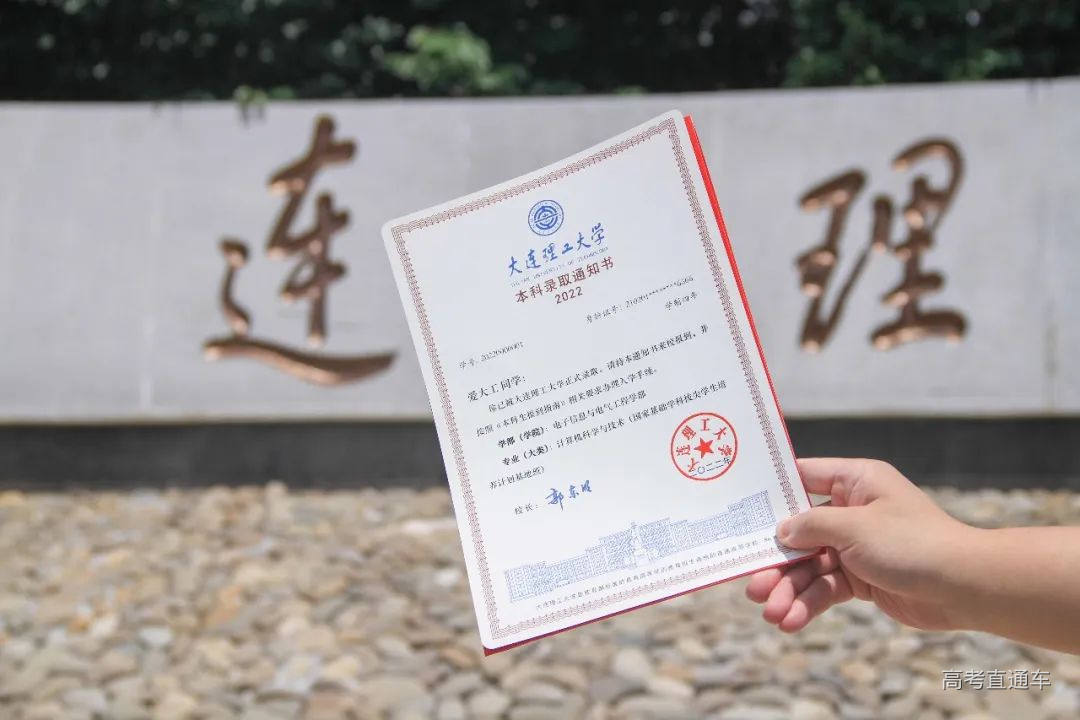 连 理
大连理工大学
DALIAN UNIVERSITY OF TECHNOLOGY
本科录取通知书
2022
学制四年
爱大工 同学:
你已被大连理工大学正式录取。请持本通知书来校报到,并
按照《本科生报到指南》相关要求办理入学手续。
学部(学院):电子信息与电气工程学部
专业(大类):计算机科学与技术(国家基础学科拔尖学生培
养计划基地班)
校长: 郭东明
大连理工大学
二〇二二年
高考直通车